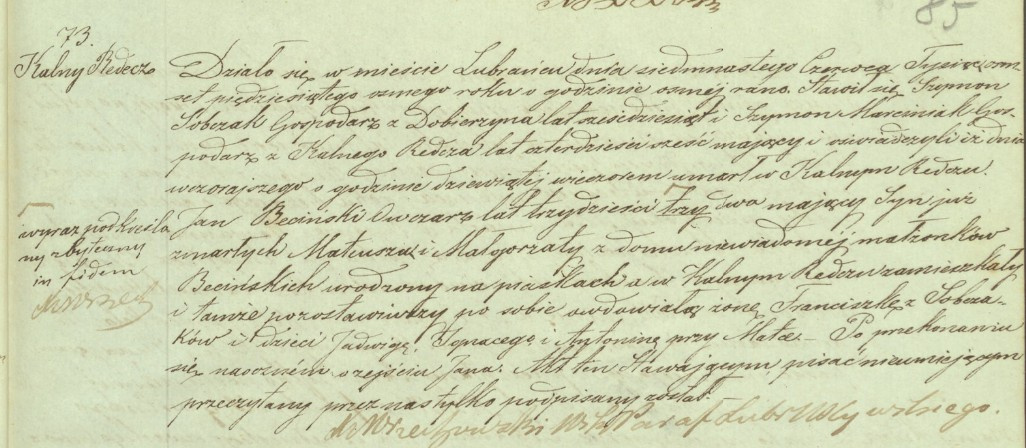 85
73.
Kalny Redecz
Działo się w mieście Lubrańcu dnia siedmnastego Czerwca Tysiąc ośm-
set pięćdziesiątego osmego roku o godzinie osmej rano. Stawił się Szymon
Sobczak Gospodarz z Dobierzyna lat sześćdziesiąt i Szymon Marciniak Gos-
podarz z Kalnego Redcza lat czterdzieści sześć mający i oświadczyli iż dnia
wczorajszego o godzinie dziewiątej wieczorem umarł w Kalnym Redczu.
Jan Beciński Owczarz lat trzydzieści trzy dwa mający Syn już
zmarłych Mateusza i Małgorzaty z domu niewiadomej małżonków
Becińskich urodzony na piaskach a w Kalnym Redczu zamieszkały
i tamże pozostawiwszy po sobie owdowiałą żonę Franciszkę z Sobcza-
ków i dzieci Jadwigę, Ignacego i Antoninę przy Matce – Po przekonaniu
się naocznem o zejściu Jana. Akt ten Stawającym pisać nieumiejącym
przeczytany przez nas tylko podpisany został.
wyraz podkreślo
ny zbyteczny
in fidem